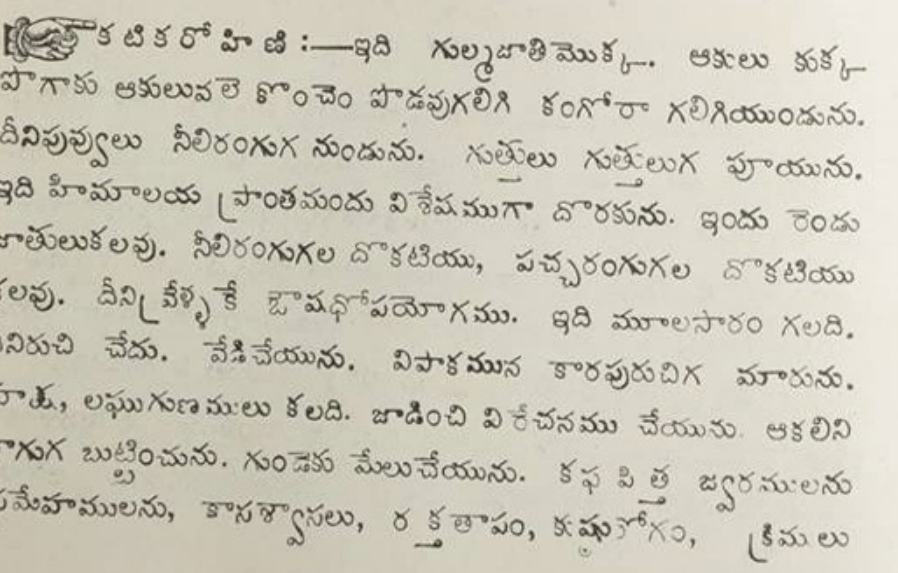 కటికరోహిణి :—ఇది గుల్మజాతిమొక్క. ఆకులు కుక్క
పొగాకు ఆకులువలె కొంచెం పొడవుగలిగి కంగోరా గలిగియుండును.
దీనిపువ్వులు నీలిరంగుగ నుండును. గుత్తులు గుత్తులుగ పూయును.
ఇది హిమాలయ ప్రాంతమందు విశేషముగా దొరకును. ఇందు రెండు
జాతులుకలవు. నీలిరంగుగల దొకటియు, పచ్చరంగుగల దొకటియు
కలవు. దీని వ్రేళ్ళకే ఔషధోపయోగము. ఇది మూలసారం గలది.
చేదు. వేడిచేయును. విపాకమున కారపురుచిగ మారును.
లఘుగుణములు కలది. జాడించి విరేచనము చేయును. ఆకలిని
బుట్టించును. గుండెకు మేలుచేయును. కఫ పిత్త జ్వరములను
కాసశ్వాసలు, రక్తతాపం, క్రిమలు